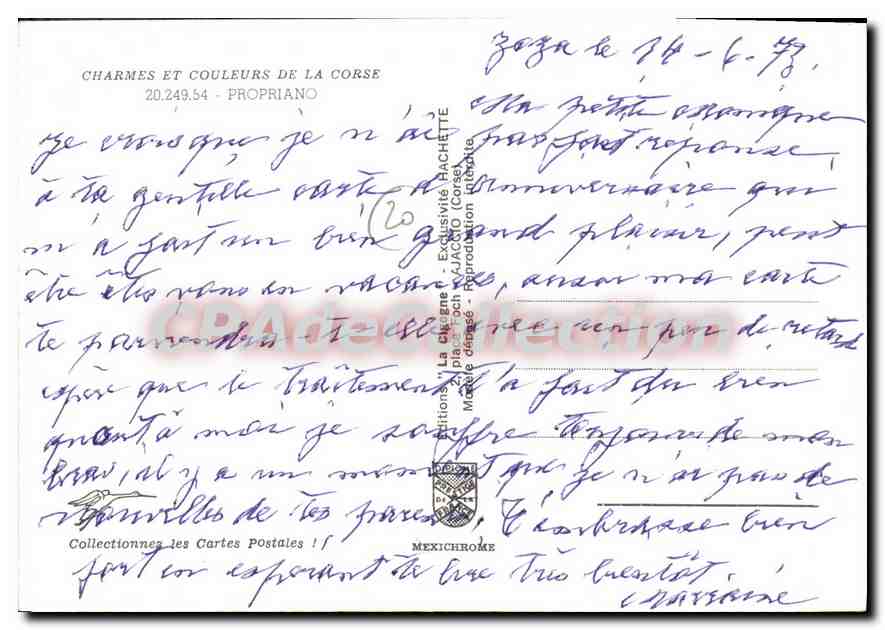 CHARMES ET COULEURS DE LA CORSE
20.249.54 - PROPRIANO
Zoza le 14-6-73.
Ma petite Monique
Je crois que je n'ai pas fait réponse
à ta gentille carte d'anniversaire qui
m'a fait un bien grand plaisir, peut
être êtes vous en vacances, ma carte
te parviendra avec un peu de retard
espère que le traitement t'a fait du bien
quant à moi je souffre toujours de mon
bras, il y a un moment que je n'ai pas de
nouvelles de tes parents, t'embrasse bien
fort en espérant te lire très bientôt.
Marraine
(20
Editions "La Cigogne" - Exclusivité HACHETTE
2, place Foch - AJACCIO (Corse)
Modèle déposé - Reproduction interdite
CPAdeCollection
DIPLOME PRESTIGE DE LA FRANCE
Collectionnez les Cartes Postales !
MEXICHROME